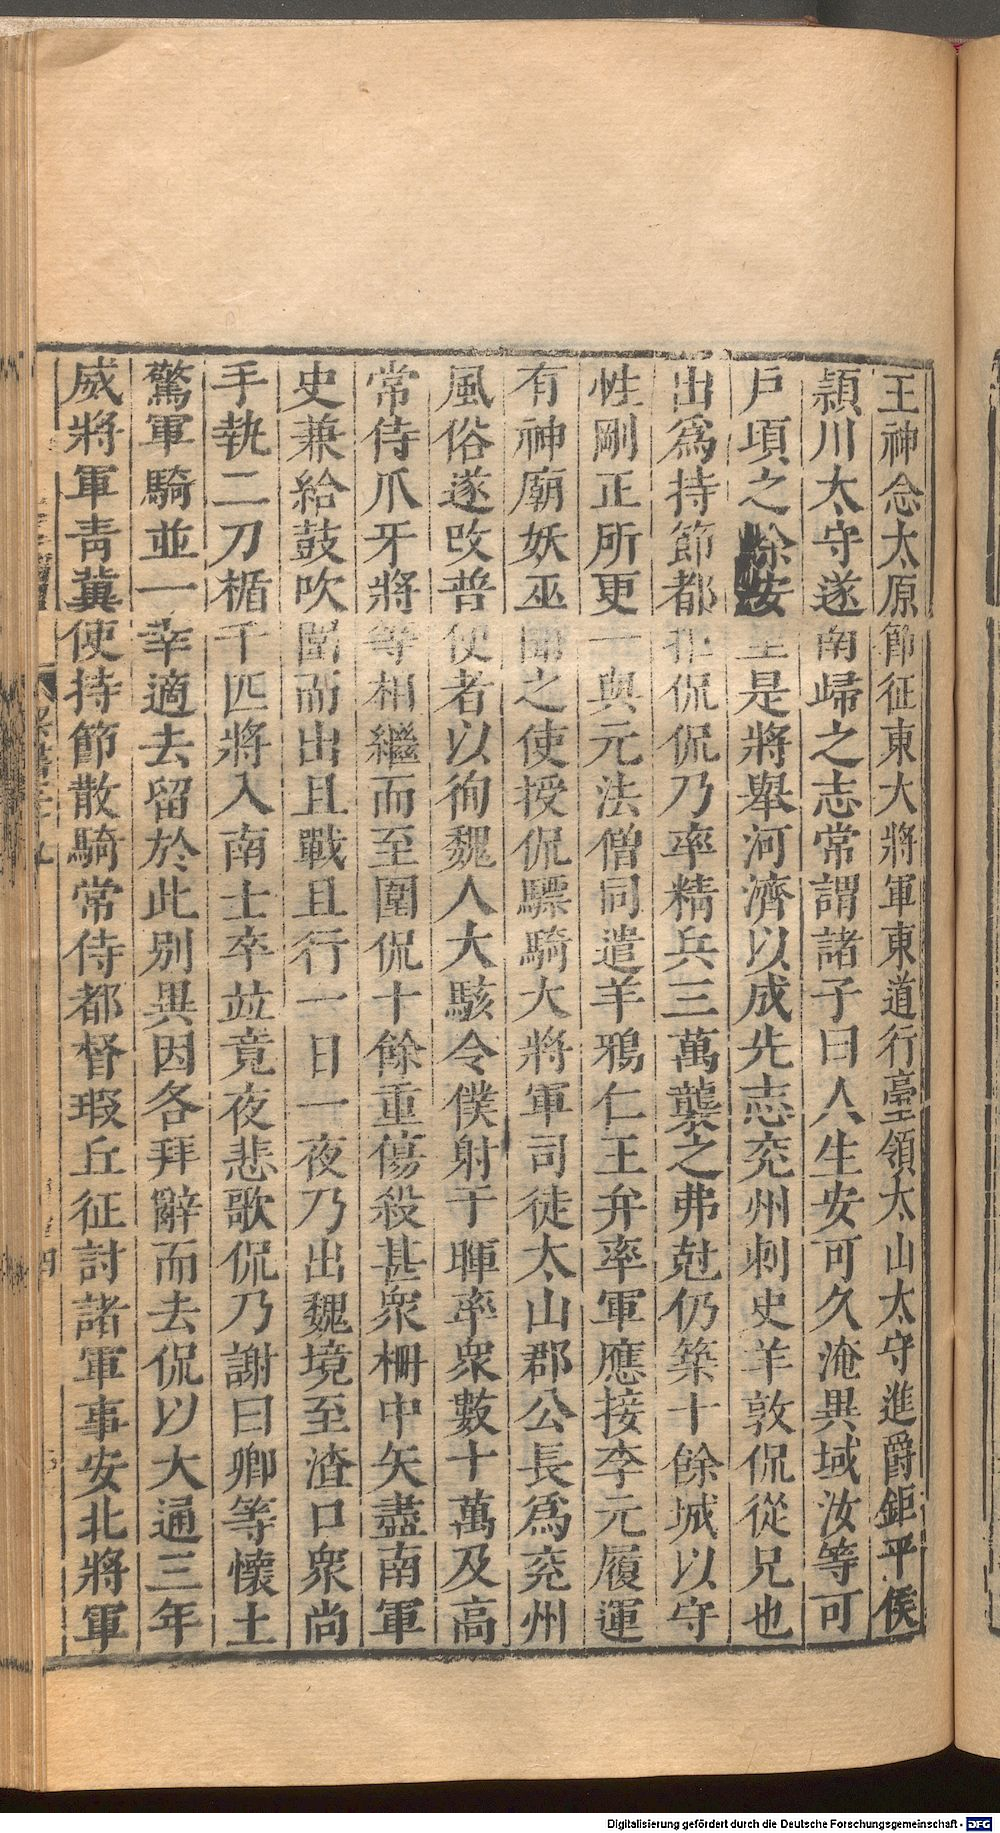 王神念太原節征東大將軍東道行臺領太山太守進爵鉅平侯
潁川太守遂南歸之志常謂諸子曰人生安可久淹異域汝等可
戶項之除安至是將舉河濟以成先志兖州刺史羊敦侃從兄也
出爲持節都拒侃侃乃率精兵三萬襲之弗尅仍築十餘城以守
性剛正所更一與元法僧同遣羊鴉仁王弁率軍應接李元履運
有神廟妖巫聞之使授侃驃騎大將軍司徒太山郡公長爲兖州
風俗遂攺普使者以徇魏人大駭令僕射于暉率衆數十萬及高
常侍爪牙將等相繼而至圍侃十餘重傷殺甚衆柵中矢盡南軍
史兼給鼓吹闈而出且戰且行一日一夜乃出魏境至渣口衆尚
手執二刀楯千匹將入南士卒竝竟夜悲歌侃乃謝曰卿等懷土
驚軍騎並一幸適去留於此別異因各拜辭而去侃以大通三年
威將軍靑冀使持節散騎常侍都督瑕丘征討諸軍事安北將軍
Digitalisierung gefördert durch die Deutsche Forschungsgemeinschaft - DFG